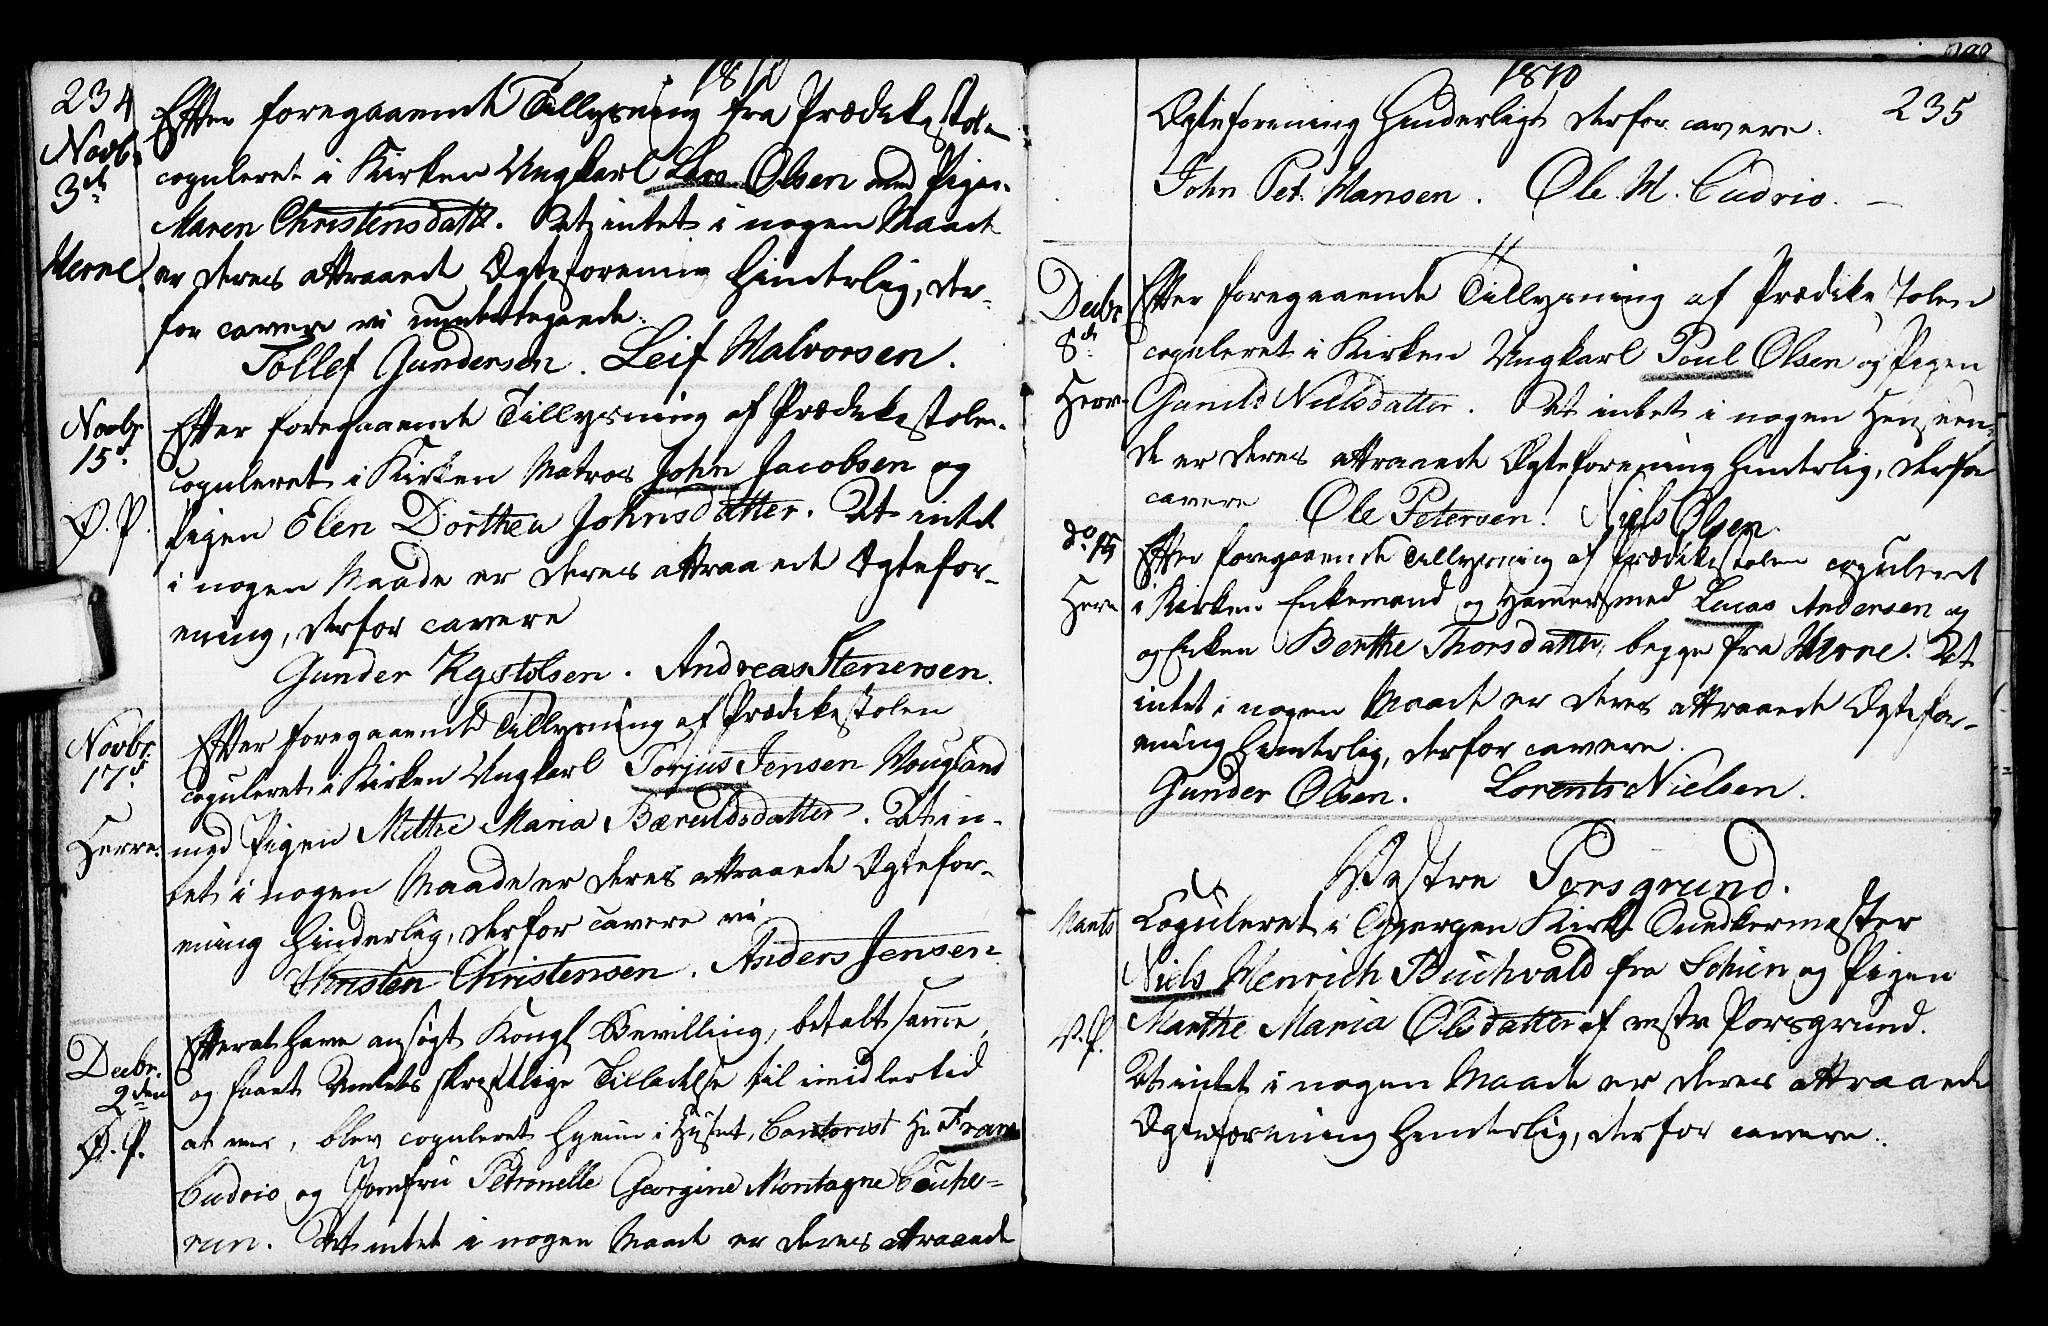 234
1810
Novbr
3de
Herre
Efter foregaaende Tillysning fra Prædikestolen
copuleret i Kirken Ungkarl Lars Olsen med Pigen
Maren Christensdatt. At intet i nogen Maade
er deres attraaede Ægteforening hinderlig, der-
for cavere vi undertegnede.
Tollef Gundersen. Leif Halvorsen.
Novbr
15d.
Ø. P.
Efter foregaaende Tillysning af Prædikestolen
copuleret i Kirken Matros John Jacobsen og
Pigen Elen Dorthea Johnsdatter. At intet
i nogen Maade er deres attraaede Ægtefor-
ening, derfor cavere
Gunder Kystolsen. Andreas Stenersen.
Novbr.
17d.
Herre.
Efter foregaaende Tillysning af Prædikestolen
copuleret i Kirken Ungkarl Torjus Jensen Hougland
med Pigen Methe Maria Bæruldsdatter. At in-
tet i nogen Maade er deres attraaede Ægtefor-
ening hinderlig, derfor cavere vi
Christen Christensen. Anders Jensen
Decbr.
2den
Ø. P.
Efterat have ansøgt Kongl Bevilling, betalt samme,
og faaet Amtets skriftlige Tilladelse til imidlertid
at , blev copuleret hjemme i Huset, Contorist Hr Frans
Cudrio og Jomfru Petronelle Georgine Montagne Couhe-
ron. At intet i nogen Maade er deres attraaede
1810
235
Ægteforening hinderligt derfor cavere.
John Pet. Hansen. Ole M. Cudrio. —
Decbr
8de
Herre
Efter foregaaende Tillysning af Prædikestolen
copuleret i Kirken Ungkarl Poul Olsen og Pigen
Gunild Nielsdatter. At intet i nogen Henseen-
de er deres attraaede Ægteforening hinderlig, derfor
cavere Ole Petersen. Niels Olsen.
do 15
Herre
Efter foregaaende Tillysning af Prædikestolen copuleret
i Kirken Enkemand og Hammersmed Lucas Andersen og
og Enken Berthe Thorsdatter, begge fra Herre. At
intet i nogen Maade er deres attraaede Ægtefor-
ening hinderlig, derfor cavere.
Gunder Olsen. Lorents Nielsen.
Westre Porsgrund.
Marts
V. P.
Copuleret i Gjerpen Kirke Snedkermester
Niels Henrich Buchvald fra Schien og Pigen
Marthe Maria Olsdatter af vestre Porsgrund.
At intet i nogen Maade er deres attraaede
Ægteforening hinderlig, derfor cavere.